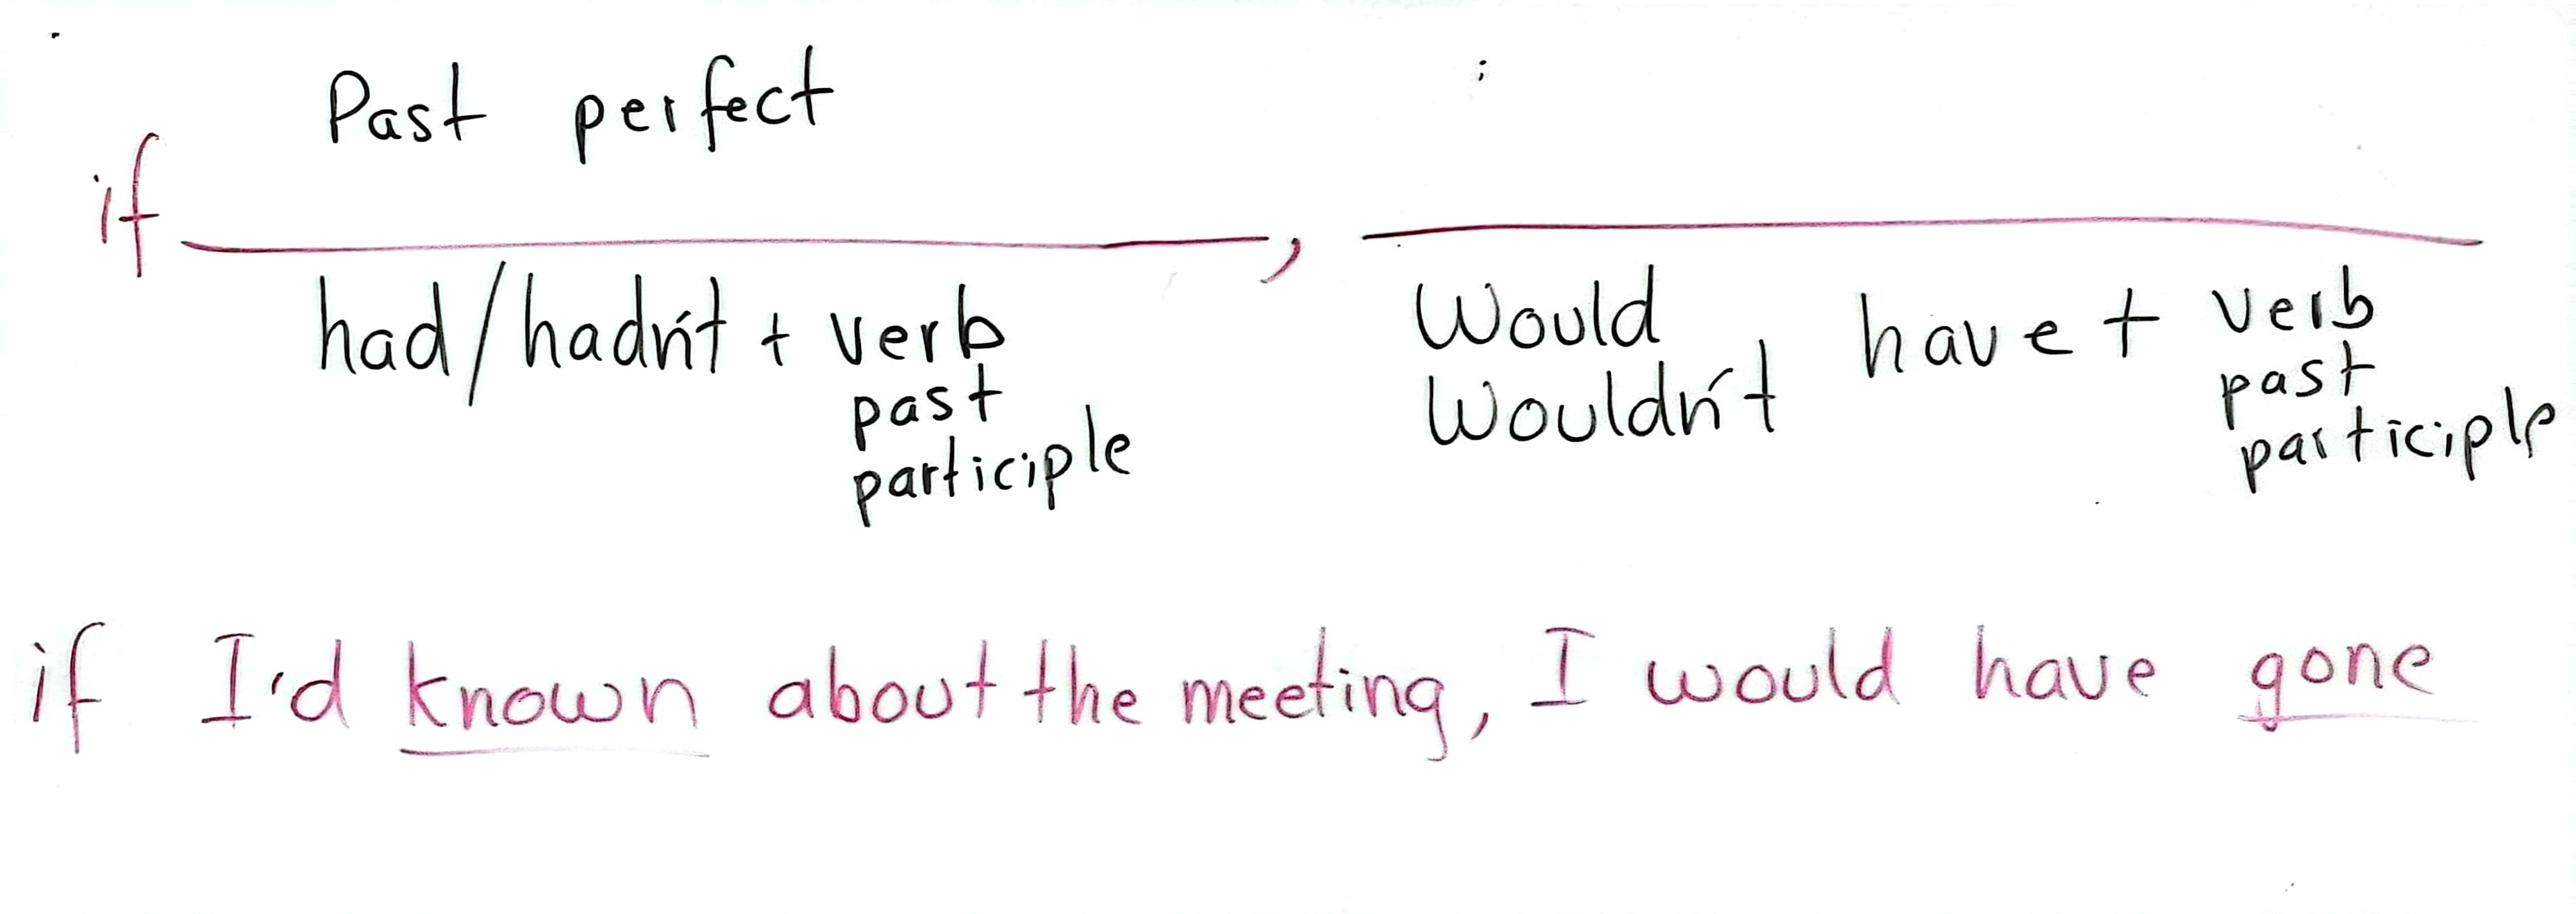 Past perfect
if ,
had/hadn't + verb past participle
Would Wouldn't have + verb past participle
if I'd known about the meeting, I would have gone